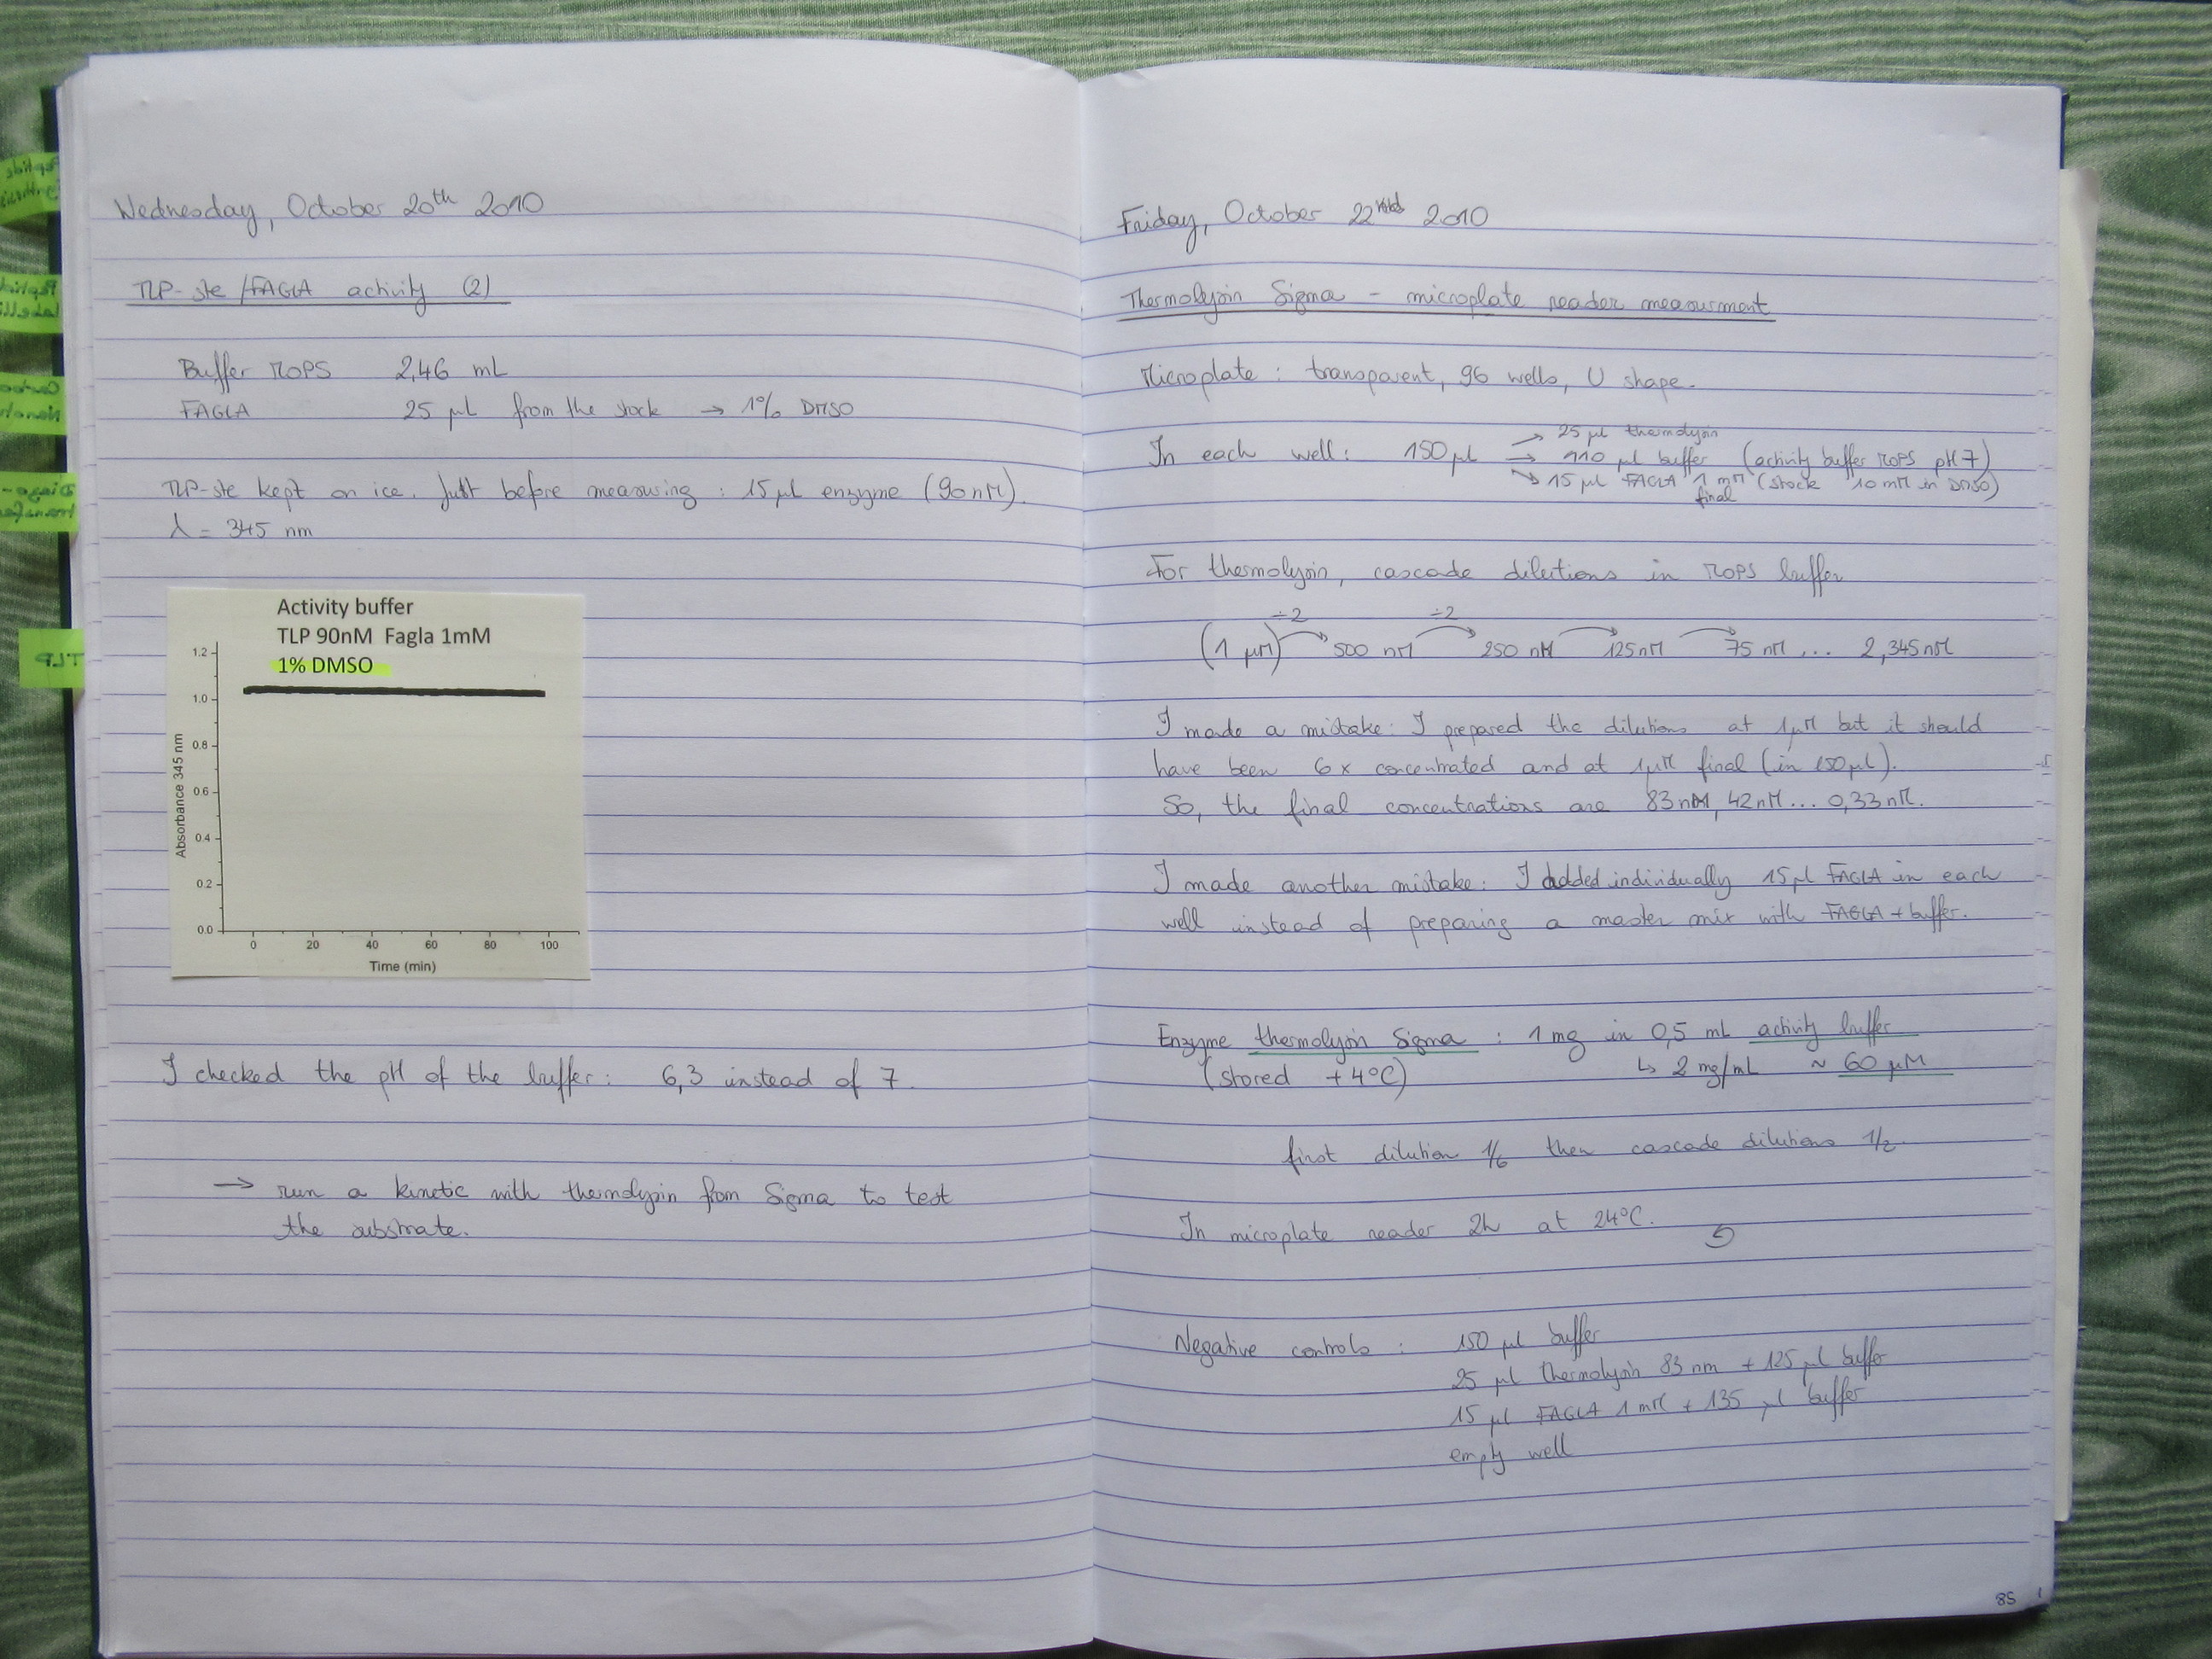 Wednesday, October 20th 2010
TLP-ste / FAGLA activity (2)
Buffer MOPS 2,46 mL
FAGLA 25 µL from the stock → 1% DMSO
TLP-ste kept on ice. Just before measuring : 15 µL enzyme (90 nM).
λ = 345 nm
Activity buffer
TLP 90nM Fagla 1mM
1% DMSO
Absorbance 345 nm
1.2
1.0
0.8
0.6
0.4
0.2
0.0
0 20 40 60 80 100
Time (min)
I checked the pH of the buffer : 6,3 instead of 7.
→ run a kinetic with thermolysin from Sigma to test
the substrate.
TLP
Friday, October 22nd 2010
Thermolysin Sigma - microplate reader measurment
Microplate : transparent, 96 wells, U shape.
In each well : 150 µL → 25 µL thermolysin
→ 110 µL buffer (activity buffer MOPS pH 7)
→ 15 µL FAGLA 1 mM final (stock 10 mM in DMSO)
For thermolysin, cascade dilutions in MOPS buffer
÷2 ÷2
(1 µM) 500 nM 250 nM 125 nM 75 nM ... 2,345 nM
I made a mistake : I prepared the dilutions at 1 µM but it should
have been 6x concentrated and at 1 µM final (in 150 µL).
So, the final concentrations are 83 nM, 42 nM ... 0,33 nM.
I made another mistake : I added individually 15 µL FAGLA in each
well instead of preparing a master mix with FAGLA + buffer.
Enzyme thermolysin Sigma : 1 mg in 0,5 mL activity buffer
(stored +4°C) ↳ 2 mg/mL ~ 60 µM
first dilution 1/6 then cascade dilutions 1/2
In microplate reader 2h at 24°C.
Negative controls : 150 µL buffer
25 µL thermolysin 83 nm + 125 µL buffer
15 µL FAGLA 1 mM + 135 µL buffer
empty well
85